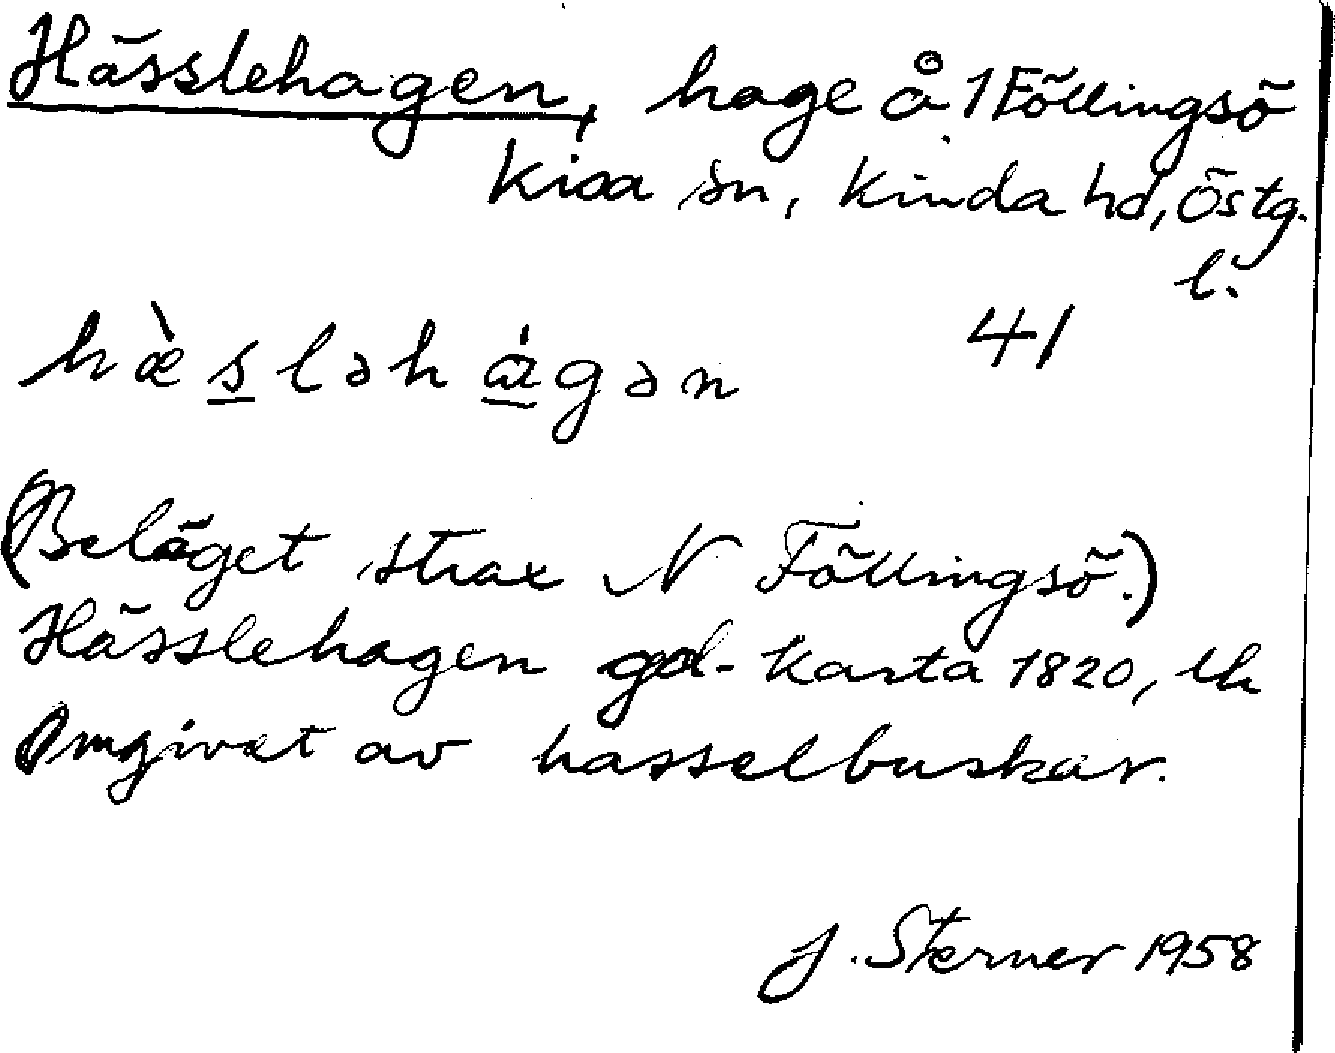 Hässlehagen, hage å 1 Föllingsö
Kisa sn, Kinda hd, Östg.
l.
41
hæ̀sləhágən
(Beläget strax N Föllingsö.)
Hässlehagen gd-karta 1820,
Omgivet av hasselbuskar.
J. Sterner 1958